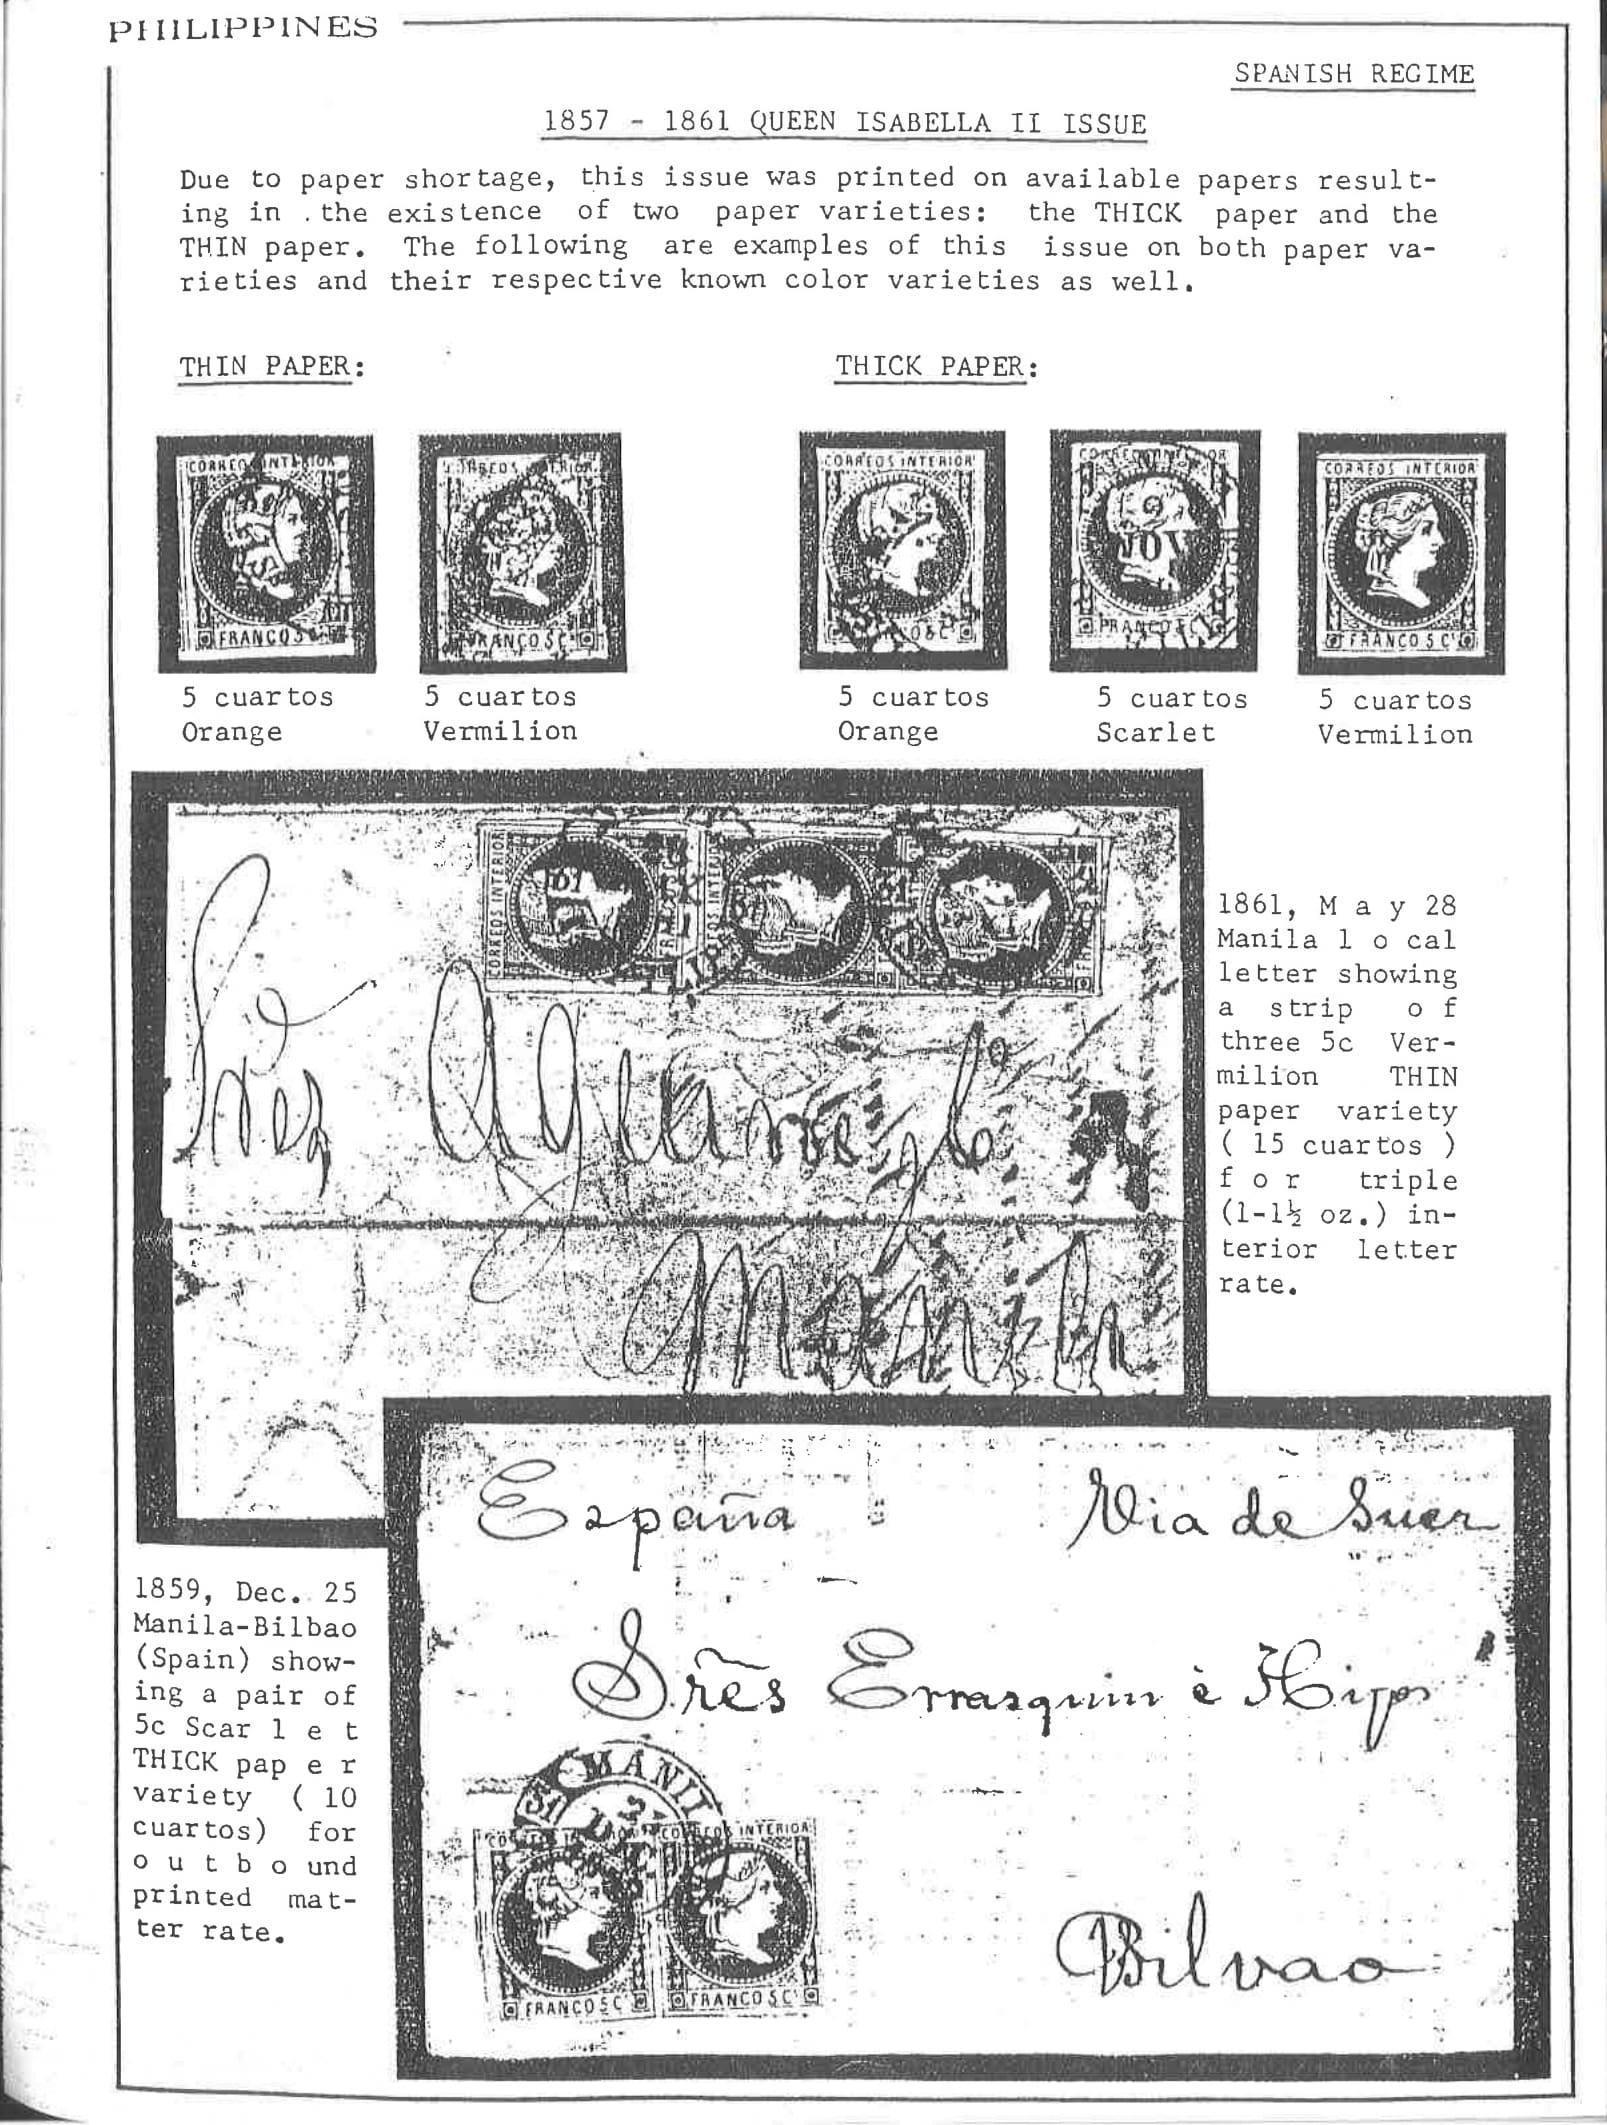 PHILIPPINES
SPANISH REGIME
1857 - 1861 QUEEN ISABELLA II ISSUE
Due to paper shortage, this issue was printed on available papers result-
ing in . the existence of two paper varieties: the THICK paper and the
THIN paper. The following are examples of this issue on both paper va-
rieties and their respective known color varieties as well.
THIN PAPER:
THICK PAPER:
CORREOS INTERIOR
FRANCO 5 C
FRANCO 5 C
CORREOS INTERIOR
CORREOS INTERIOR
FRANCO 5 C
5 cuartos
Orange
5 cuartos
Vermilion
5 cuartos
Orange
5 cuartos
Scarlet
5 cuartos
Vermilion
CORREOS INTERIOR
1861, M a y 28
Manila l o cal
letter showing
a strip o f
three 5c Ver-
milion THIN
paper variety
( 15 cuartos )
f o r triple
(1-1½ oz.) in-
terior letter
rate.
Manila
España Via de Suez
Sres Errasquin è Hijos
MANIL
CORREOS INTERIOR
FRANCO 5 C FRANCO 5 C
Bilvao
1859, Dec. 25
Manila-Bilbao
(Spain) show-
ing a pair of
5c Scar l e t
THICK pap e r
variety ( 10
cuartos) for
o u t b o und
printed mat-
ter rate.